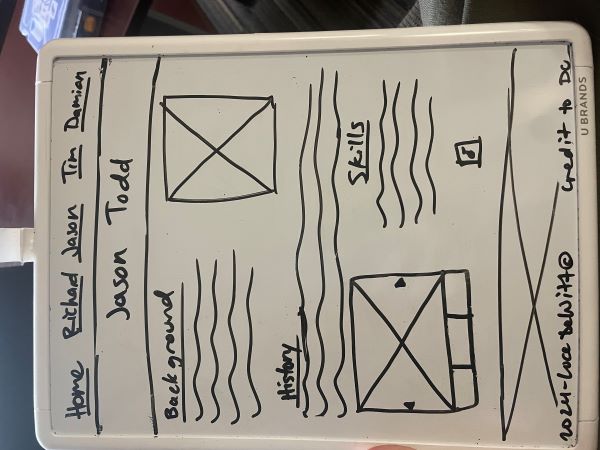 Home Richard Jason Tim Damian
Jason Todd
Background
History
Skills
2024-Luce DeWitt©
Credit to DC
U BRANDS